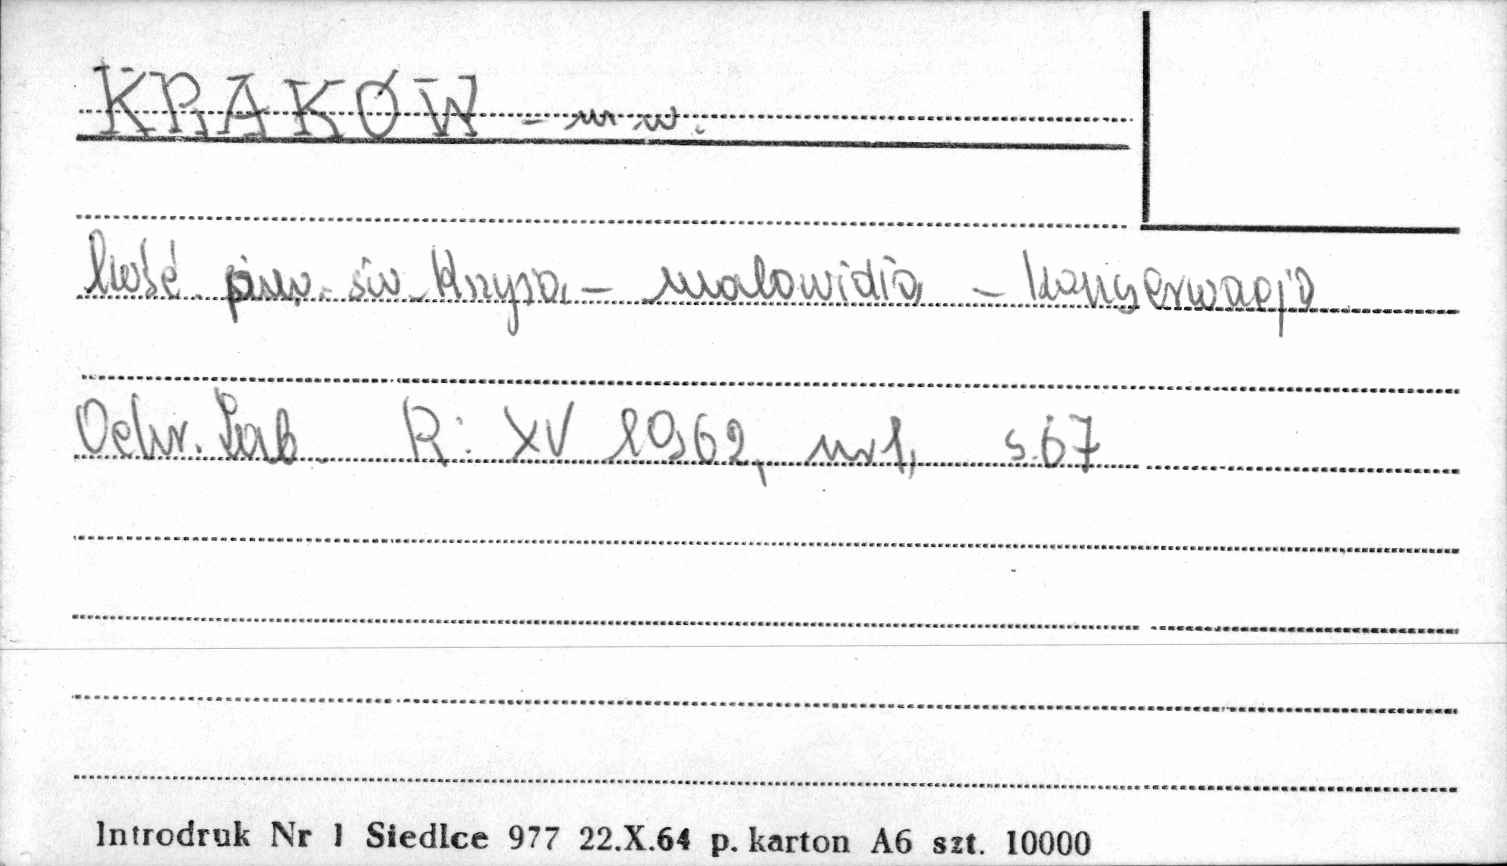 KRAKÓW - m w.
kość. pw. św. Krzyża - malowidła - konserwacja
Ochr. Zab. R: XV 1962, nr 1, s.67
Introdruk Nr 1 Siedlce 977 22.X.64 p. karton A6 szt. 10000